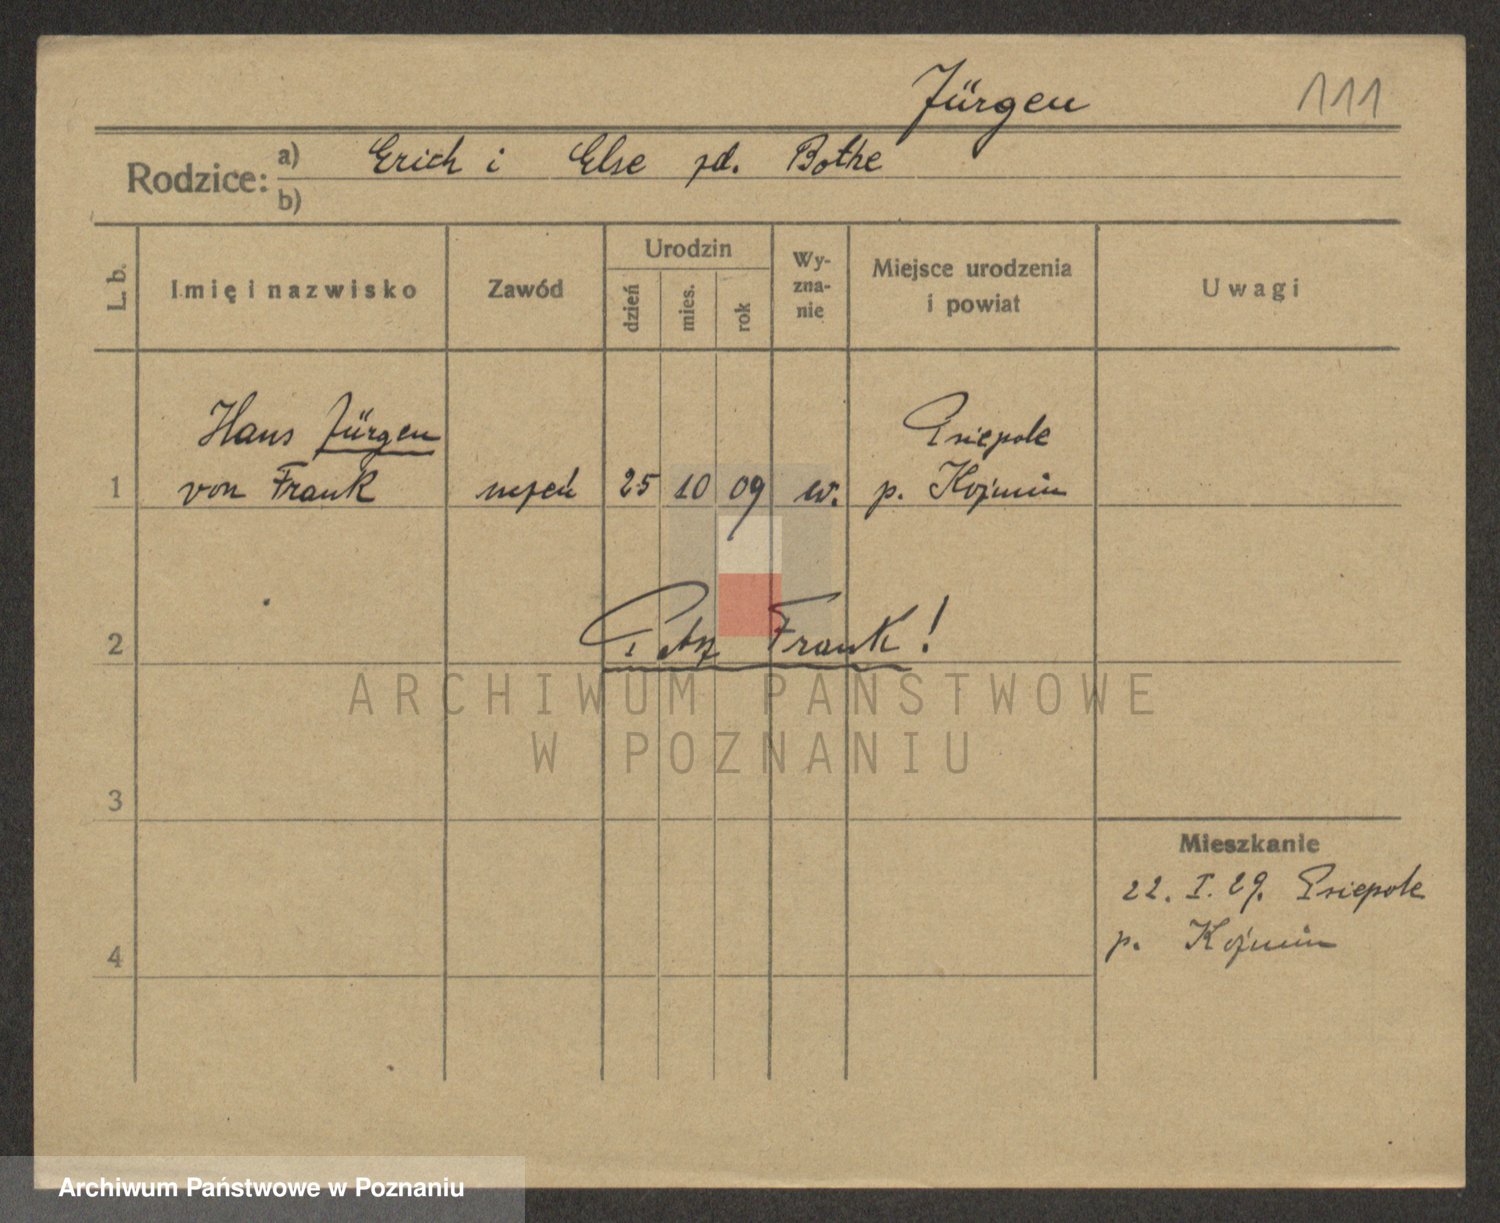 Jürgen
111
Rodzice:
a) Erich i Else zd. Bothe
b)
L. b.
Imię i nazwisko
Zawód
Urodzin
dzień
mies.
rok
Wy-
zna-
nie
Miejsce urodzenia
i powiat
Uwagi
Hans Jürgen
von Frank
25
10
09
ew.
Psiepole
p. Koźmin
1
2
Frank!
ARCHIWUM PAŃSTWOWE
W POZNANIU
3
Mieszkanie
22. I. 29. Psiepole
p. Koźmin
4
Archiwum Państwowe w Poznaniu